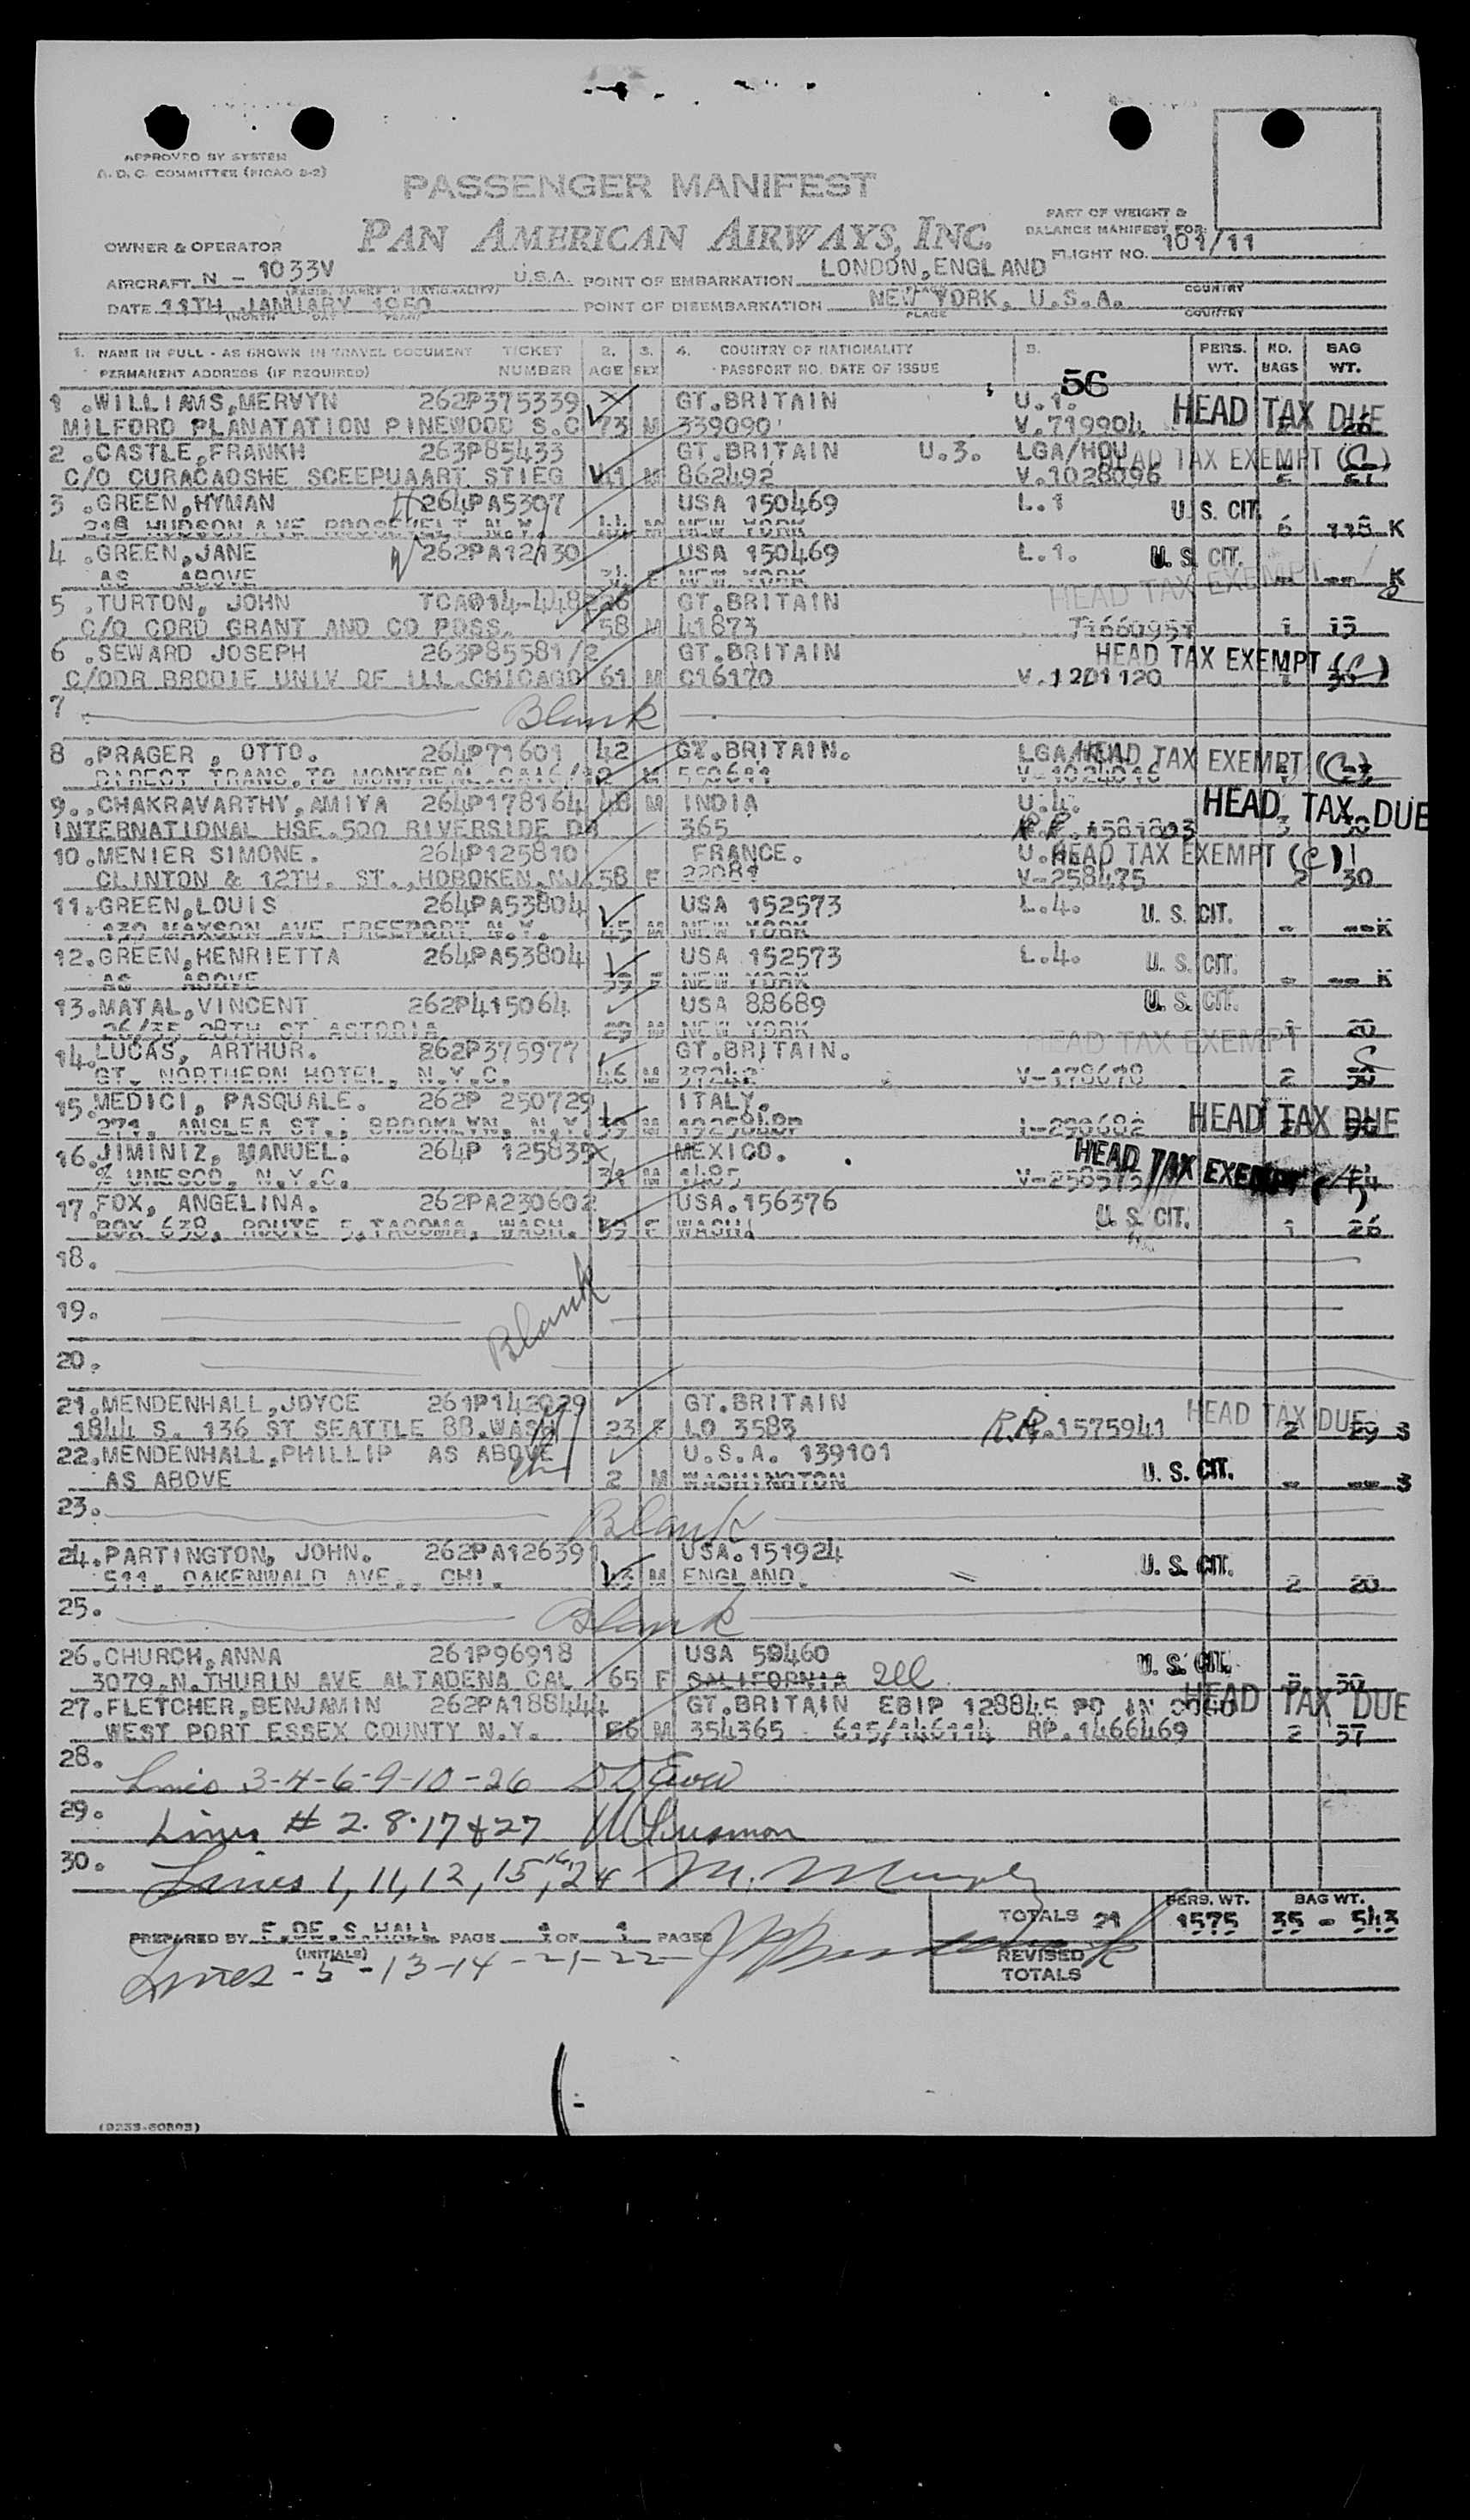 APPROVED BY SYSTEM
A. D. C. COMMITTEE (PICAO 2-2)
PASSENGER MANIFEST
PAN AMERICAN AIRWAYS, INC.
PART OF WEIGHT &
BALANCE MANIFEST FOR
OWNER & OPERATOR
FLIGHT NO. 101/11
AIRCRAFT N - 1033V U.S.A. POINT OF EMBARKATION LONDON, ENGLAND
COUNTRY
DATE 11TH JANUARY 1950 POINT OF DISEMBARKATION NEW YORK, U.S.A.
(MONTH DAY YEAR) PLACE COUNTRY
1. NAME IN FULL - AS SHOWN IN TRAVEL DOCUMENT TICKET 2. 3. 4. COUNTRY OF NATIONALITY 5. PERS. NO. BAG
PERMANENT ADDRESS (IF REQUIRED) NUMBER AGE SEX PASSPORT NO. DATE OF ISSUE WT. BAGS WT.
56
1 .WILLIAMS,MERVYN 262P375339 GT.BRITAIN U.1. HEAD TAX DUE
MILFORD PLANATATION PINEWOOD S.C 73 M 339090 V.719904 26
2 .CASTLE,FRANKH 263P85433 GT.BRITAIN U.3. LGA/HOU HEAD TAX EXEMPT (C)
C/O CURACAOSHE SCEEPUAART STIEG 41 M 862492 V.1028096
3 .GREEN,HYMAN 264PA5307 USA 150469 L.1 U. S. CIT.
218 HUDSON AVE ROOSEVELT N.Y. 44 M NEW YORK 6 118 K
4 .GREEN,JANE 262PA12130 USA 150469 L.1. U. S. CIT.
AS ABOVE F NEW YORK - -- K
HEAD TAX EXEMPT
5 .TURTON, JOHN TCA014-448226 GT.BRITAIN
C/O CORD GRANT AND CO POSS. 58 M 41873 1 15
6 .SEWARD JOSEPH 263P85581/2 GT.BRITAIN HEAD TAX EXEMPT (C)
C/ODR BRODIE UNIV OF ILL.CHICAGO 61 M C16170 V.1201120
7 Blank
8 .PRAGER , OTTO. 264P71601 42 GT.BRITAIN. HEAD TAX EXEMPT (C)
DIRECT TRANS.TO MONTREAL M V-1024016
9..CHAKRAVARTHY,AMIYA 264P178164 48 M INDIA U.4. HEAD TAX DUE
INTERNATIONAL HSE.500 RIVERSIDE DR 365 1581803 3 50
10.MENIER SIMONE. 264P125810 FRANCE. HEAD TAX EXEMPT (C)
CLINTON & 12TH. ST.,HOBOKEN,NJ 58 F 22081 V-258475 2 30
11.GREEN,LOUIS 264PA53804 USA 152573 L.4. U. S. CIT.
139 MAXSON AVE FREEPORT N.Y. 45 M NEW YORK - --K
12.GREEN,HENRIETTA 264PA53804 USA 152573 L.4. U. S. CIT.
AS ABOVE 39 F NEW YORK - -- K
13.MATAL,VINCENT 262P415064 USA 88689 U. S. CIT.
26/35 28TH ST ASTORIA 29 M NEW YORK 1 20
HEAD TAX EXEMPT
14.LUCAS, ARTHUR. 262P375977 GT.BRITAIN.
GT. NORTHERN HOTEL, N.Y.C. 46 M 37242 V-178678 2
15.MEDICI, PASQUALE. 262P 250729 ITALY. HEAD TAX DUE
271, ANSLEA ST., BROOKLYN, N.Y. 39 M 1925848P I-290682
16.JIMINIZ, MANUEL. 264P 125835 MEXICO. HEAD TAX EXEMPT
% UNESCO, N.Y.C. 31 M 1485
17.FOX, ANGELINA. 262PA230602 USA.156376 U. S. CIT.
BOX 638, ROUTE 5,TACOMA, WASH. 59 F WASH. 1 26
18.
19. Blank
20.
21.MENDENHALL,JOYCE 261P142029 GT.BRITAIN HEAD TAX DUE
1844 S. 136 ST SEATTLE 88.WASH 23 F LO 3583 R.P.1575941 2 29 S
22.MENDENHALL,PHILLIP AS ABOVE U.S.A. 139101 U. S. CIT.
AS ABOVE 2 M WASHINGTON - -- S
23. Blank
24.PARTINGTON, JOHN. 262PA126391 USA.151924 U. S. CIT.
511, OAKENWALD AVE., CHI. 43 M ENGLAND. 2 20
25. Blank
26.CHURCH,ANNA 261P96918 USA 50460 U. S. CIT.
3079.N.THURIN AVE ALTADENA CAL 65 F CALIFORNIA 3 50
27.FLETCHER,BENJAMIN 262PA188444 GT.BRITAIN EBIP 128845 PO IN HEAD TAX DUE
WEST PORT ESSEX COUNTY N.Y. 56 M 354365 - 615/146114 RP.1466469 2 37
28. Lines 3-4-6-9-10-26
29. Lines # 2.8.17 & 27
30. Lines 1, 11, 12, 15, 16, 24 M. Murphy
PERS. WT. BAG WT.
TOTALS 21 1575 35 - 543
PREPARED BY F.DE.S.HALL PAGE 1 OF 1 PAGES
(INITIALS)
REVISED
TOTALS
Lines - 5 - 13 - 14 - 21 - 22 -